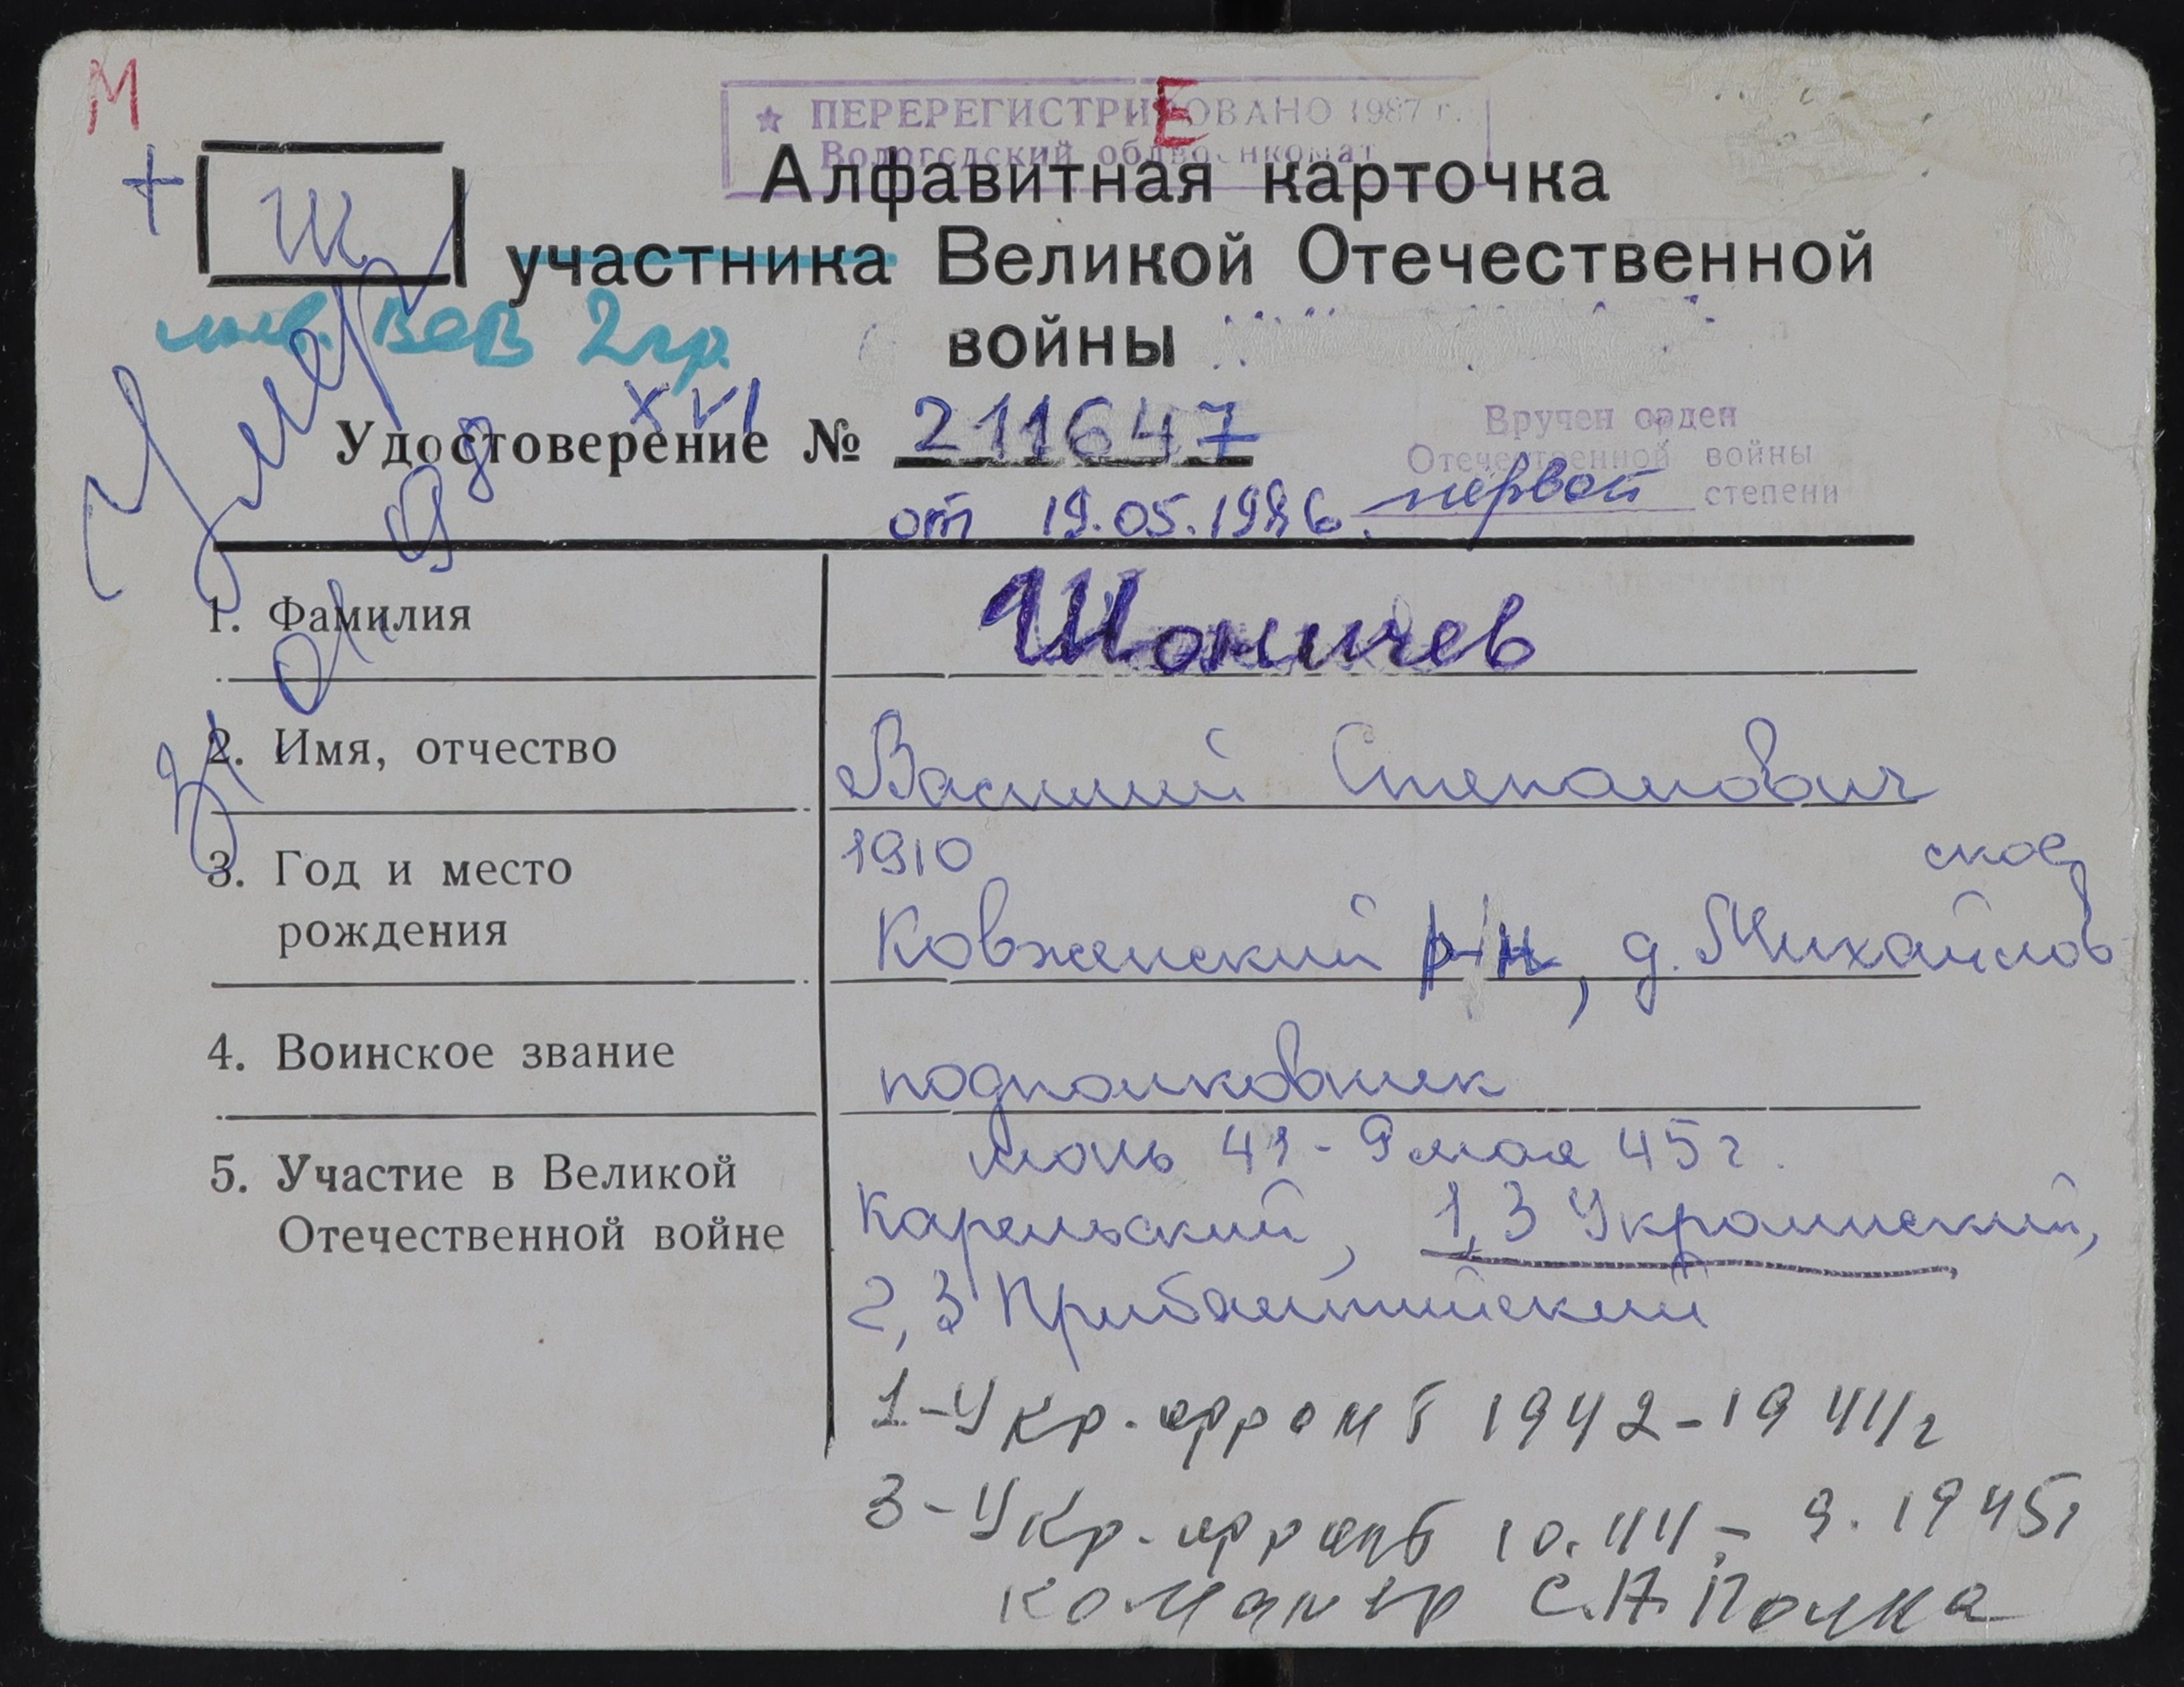 М
Е
★ ПЕРЕРЕГИСТРИРОВАНО 1987 г.
Вологодский облвоенкомат
+ Ш
Алфавитная карточка
участника Великой Отечественной
войны
инв. ВОВ 2 гр.
Умер
31 01 98
XVI
Удостоверение № 211647
от 19.05.1986.
Вручен орден
Отечественной войны
первой степени
1. Фамилия
Шоничев
2. Имя, отчество
Василий Степанович
3. Год и место
рождения
1910
Ковженский р-н, д. Михайлов
ское
4. Воинское звание
подполковник
5. Участие в Великой
Отечественной войне
июнь 41 - 9 мая 45 г.
Карельский, 1,3 Украинский,
2,3 Прибалтийский
1-Укр. фронт 1942-1944 г
3-Укр. фронт 10.44 - 9.1945 г
командир С.А. Полка